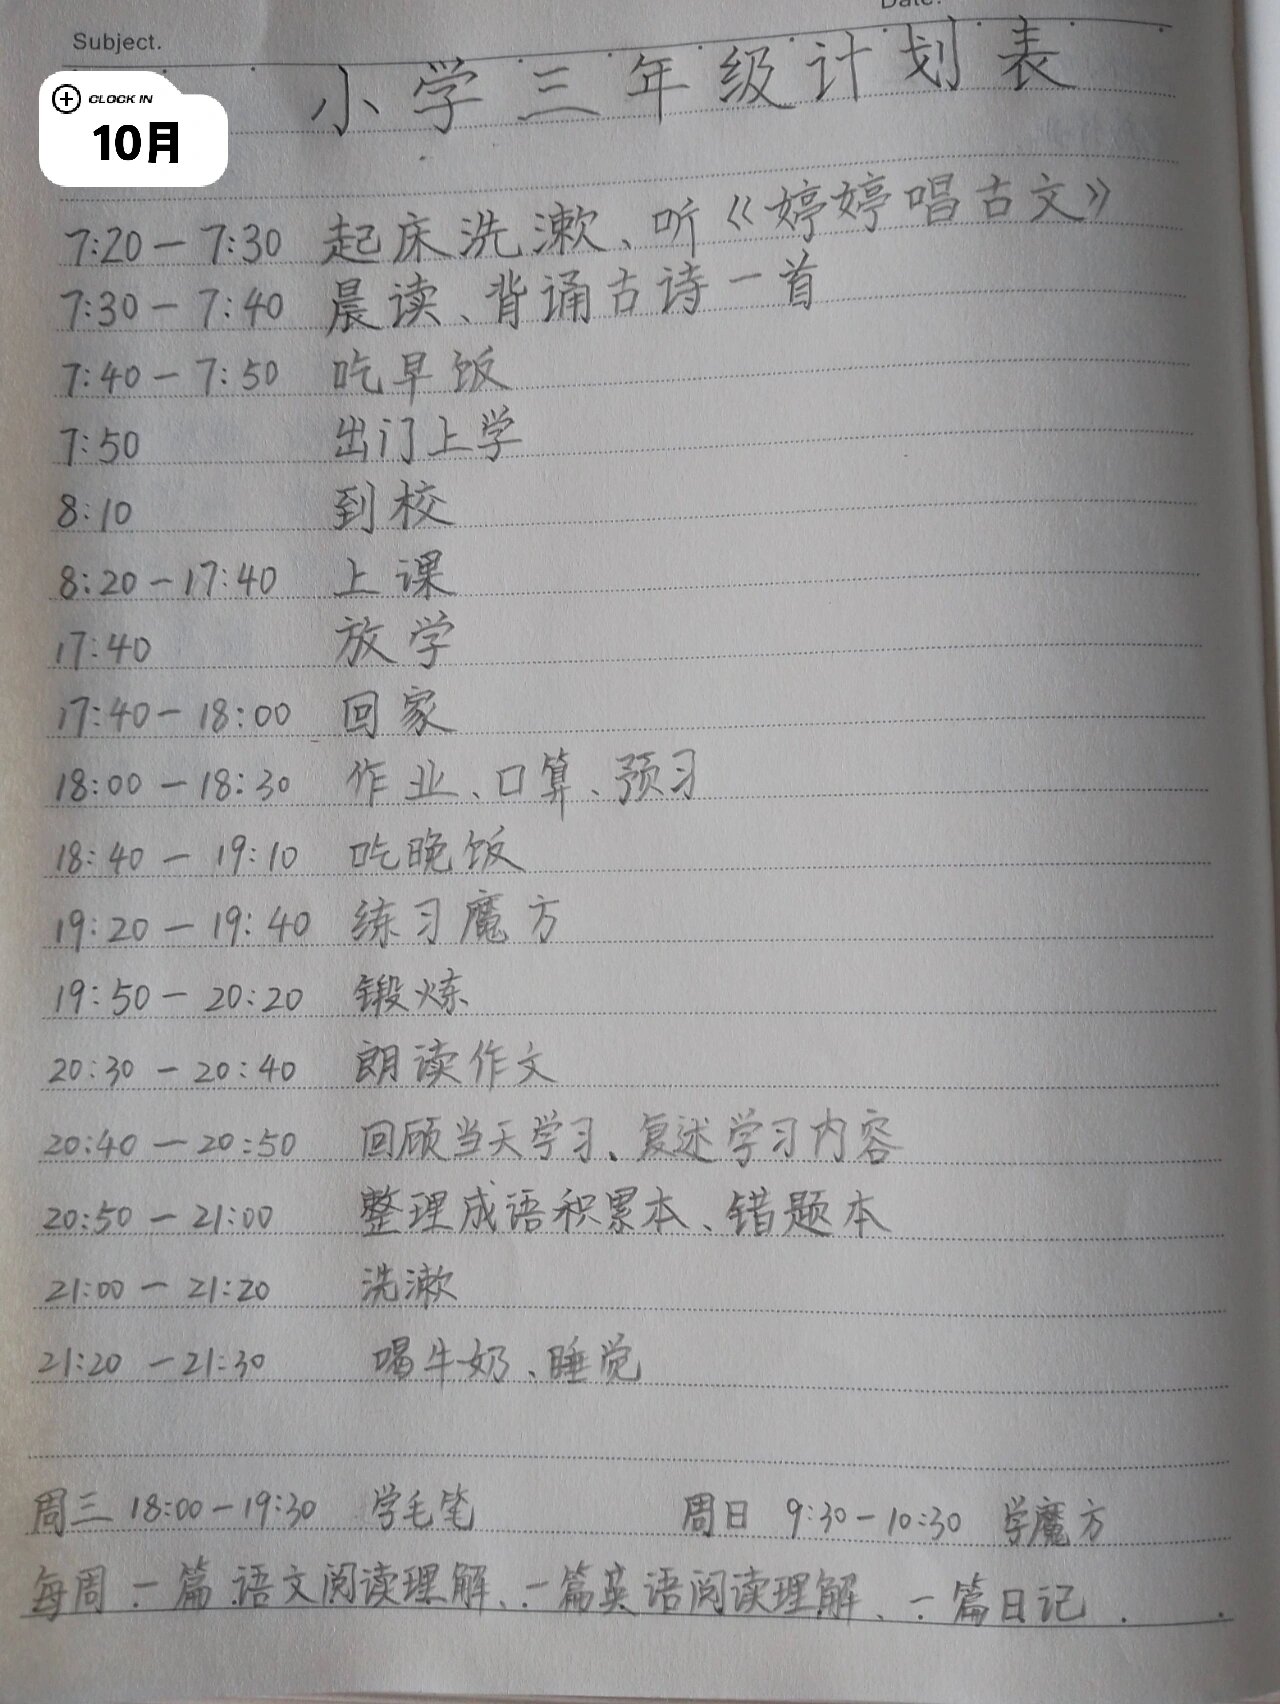 Date.
Subject.
小学三年级计划表
CLOCK IN
10月
7:20 — 7:30 起床洗漱、听《婷婷唱古文》
7:30 — 7:40 晨读、背诵古诗一首
7:40 — 7:50 吃早饭
7:50 出门上学
8:10 到校
8:20 — 17:40 上课
17:40 放学
17:40 — 18:00 回家
18:00 — 18:30 作业、口算、预习
18:40 — 19:10 吃晚饭
19:20 — 19:40 练习魔方
19:50 — 20:20 锻炼
20:30 — 20:40 朗读作文
20:40 — 20:50 回顾当天学习、复述学习内容
20:50 — 21:00 整理成语积累本、错题本
21:00 — 21:20 洗漱
21:20 — 21:30 喝牛奶、睡觉
周三 18:00 — 19:30 学毛笔 周日 9:30 — 10:30 学魔方
每周 一篇语文阅读理解、一篇英语阅读理解、一篇日记.